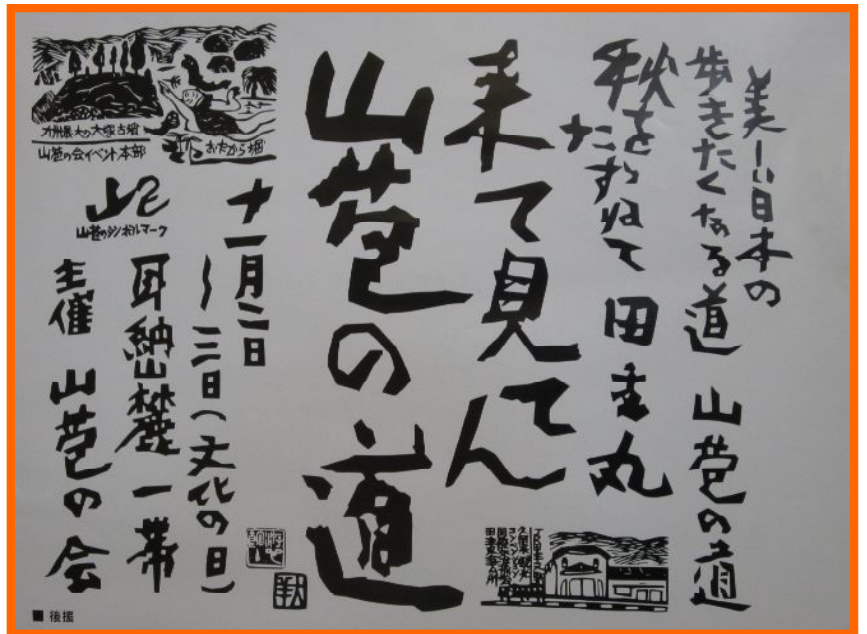 美しい日本の
歩きたくなる道 山苞の道
秋を
たずねて 田主丸
来て見てん
てん
山苞の道
十一月二日
〜三日(文化の日)
耳納山麓一帯
主催 山苞の会
九州最大の大塚古墳
山苞の会イベント本部
おたから堀
山苞のシンボルマーク
■ 後援